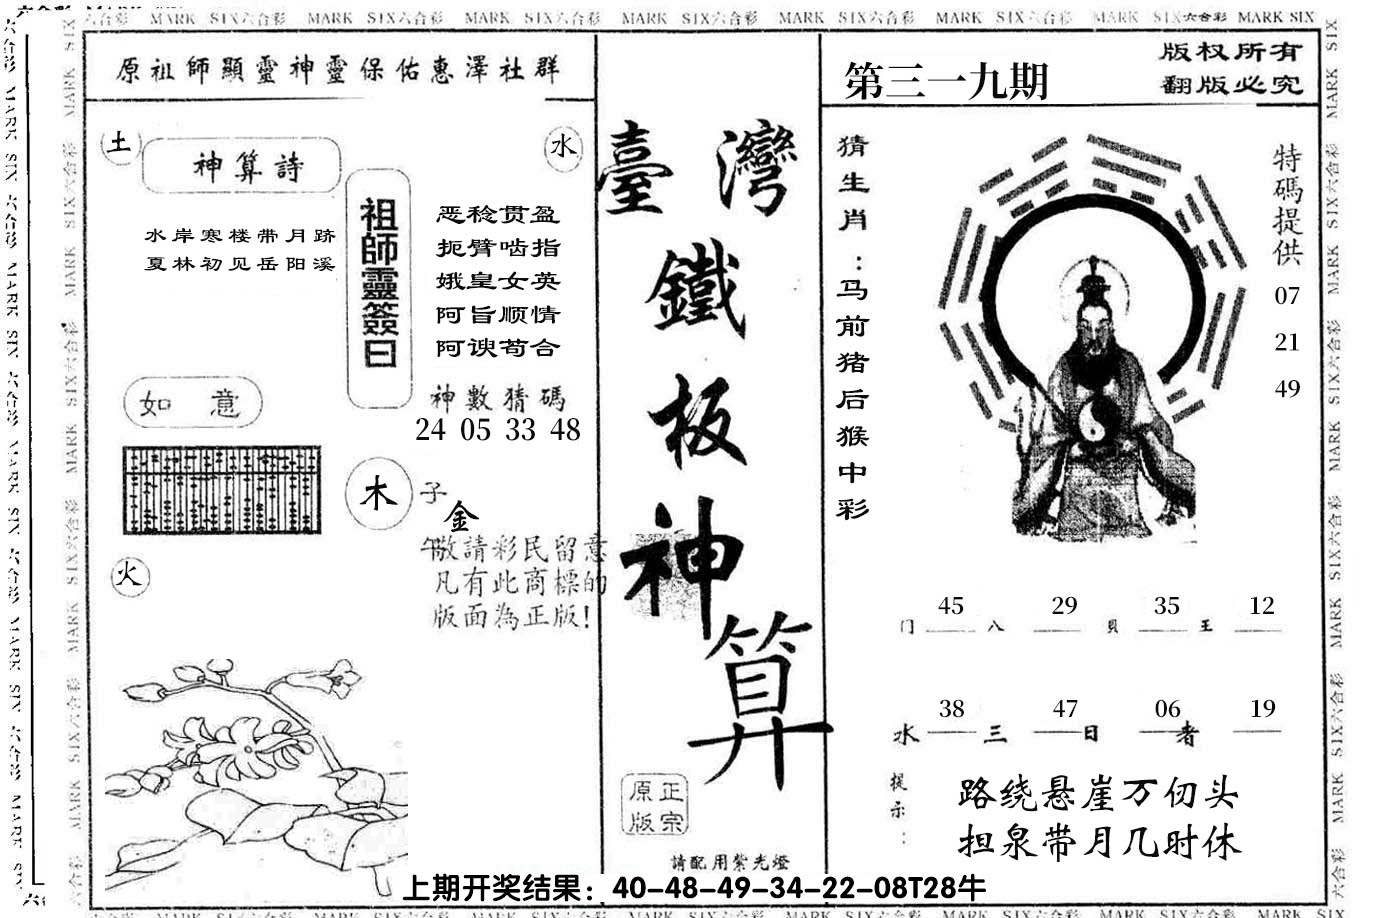 原祖師顯靈神靈保佑惠澤社群
土
神算詩
水
水岸寒楼带月跻
夏林初见岳阳溪
祖師靈簽曰
恶稔贯盈
扼臂啮指
娥皇女英
阿旨顺情
阿谀苟合
神數猜碼
24 05 33 48
如 意
木
子
金
午
敬請彩民留意
凡有此商標的
版面為正版!
火
臺灣
鐵
板
神
算
正宗
原版
請配用紫光燈
第三一九期
版权所有
翻版必究
猜生肖:马前猪后猴中彩
特碼提供
07
21
49
门 45 八 29 貝 35 王 12
水 38 三 47 日 06 者 19
提示:
路绕悬崖万仞头
担泉带月几时休
上期开奖结果：40-48-49-34-22-08T28牛
MARK SIX六合彩 MARK SIX六合彩 MARK SIX六合彩 MARK SIX六合彩 MARK SIX六合彩 MARK SIX六合彩 MARK SIX六合彩 MARK SIX